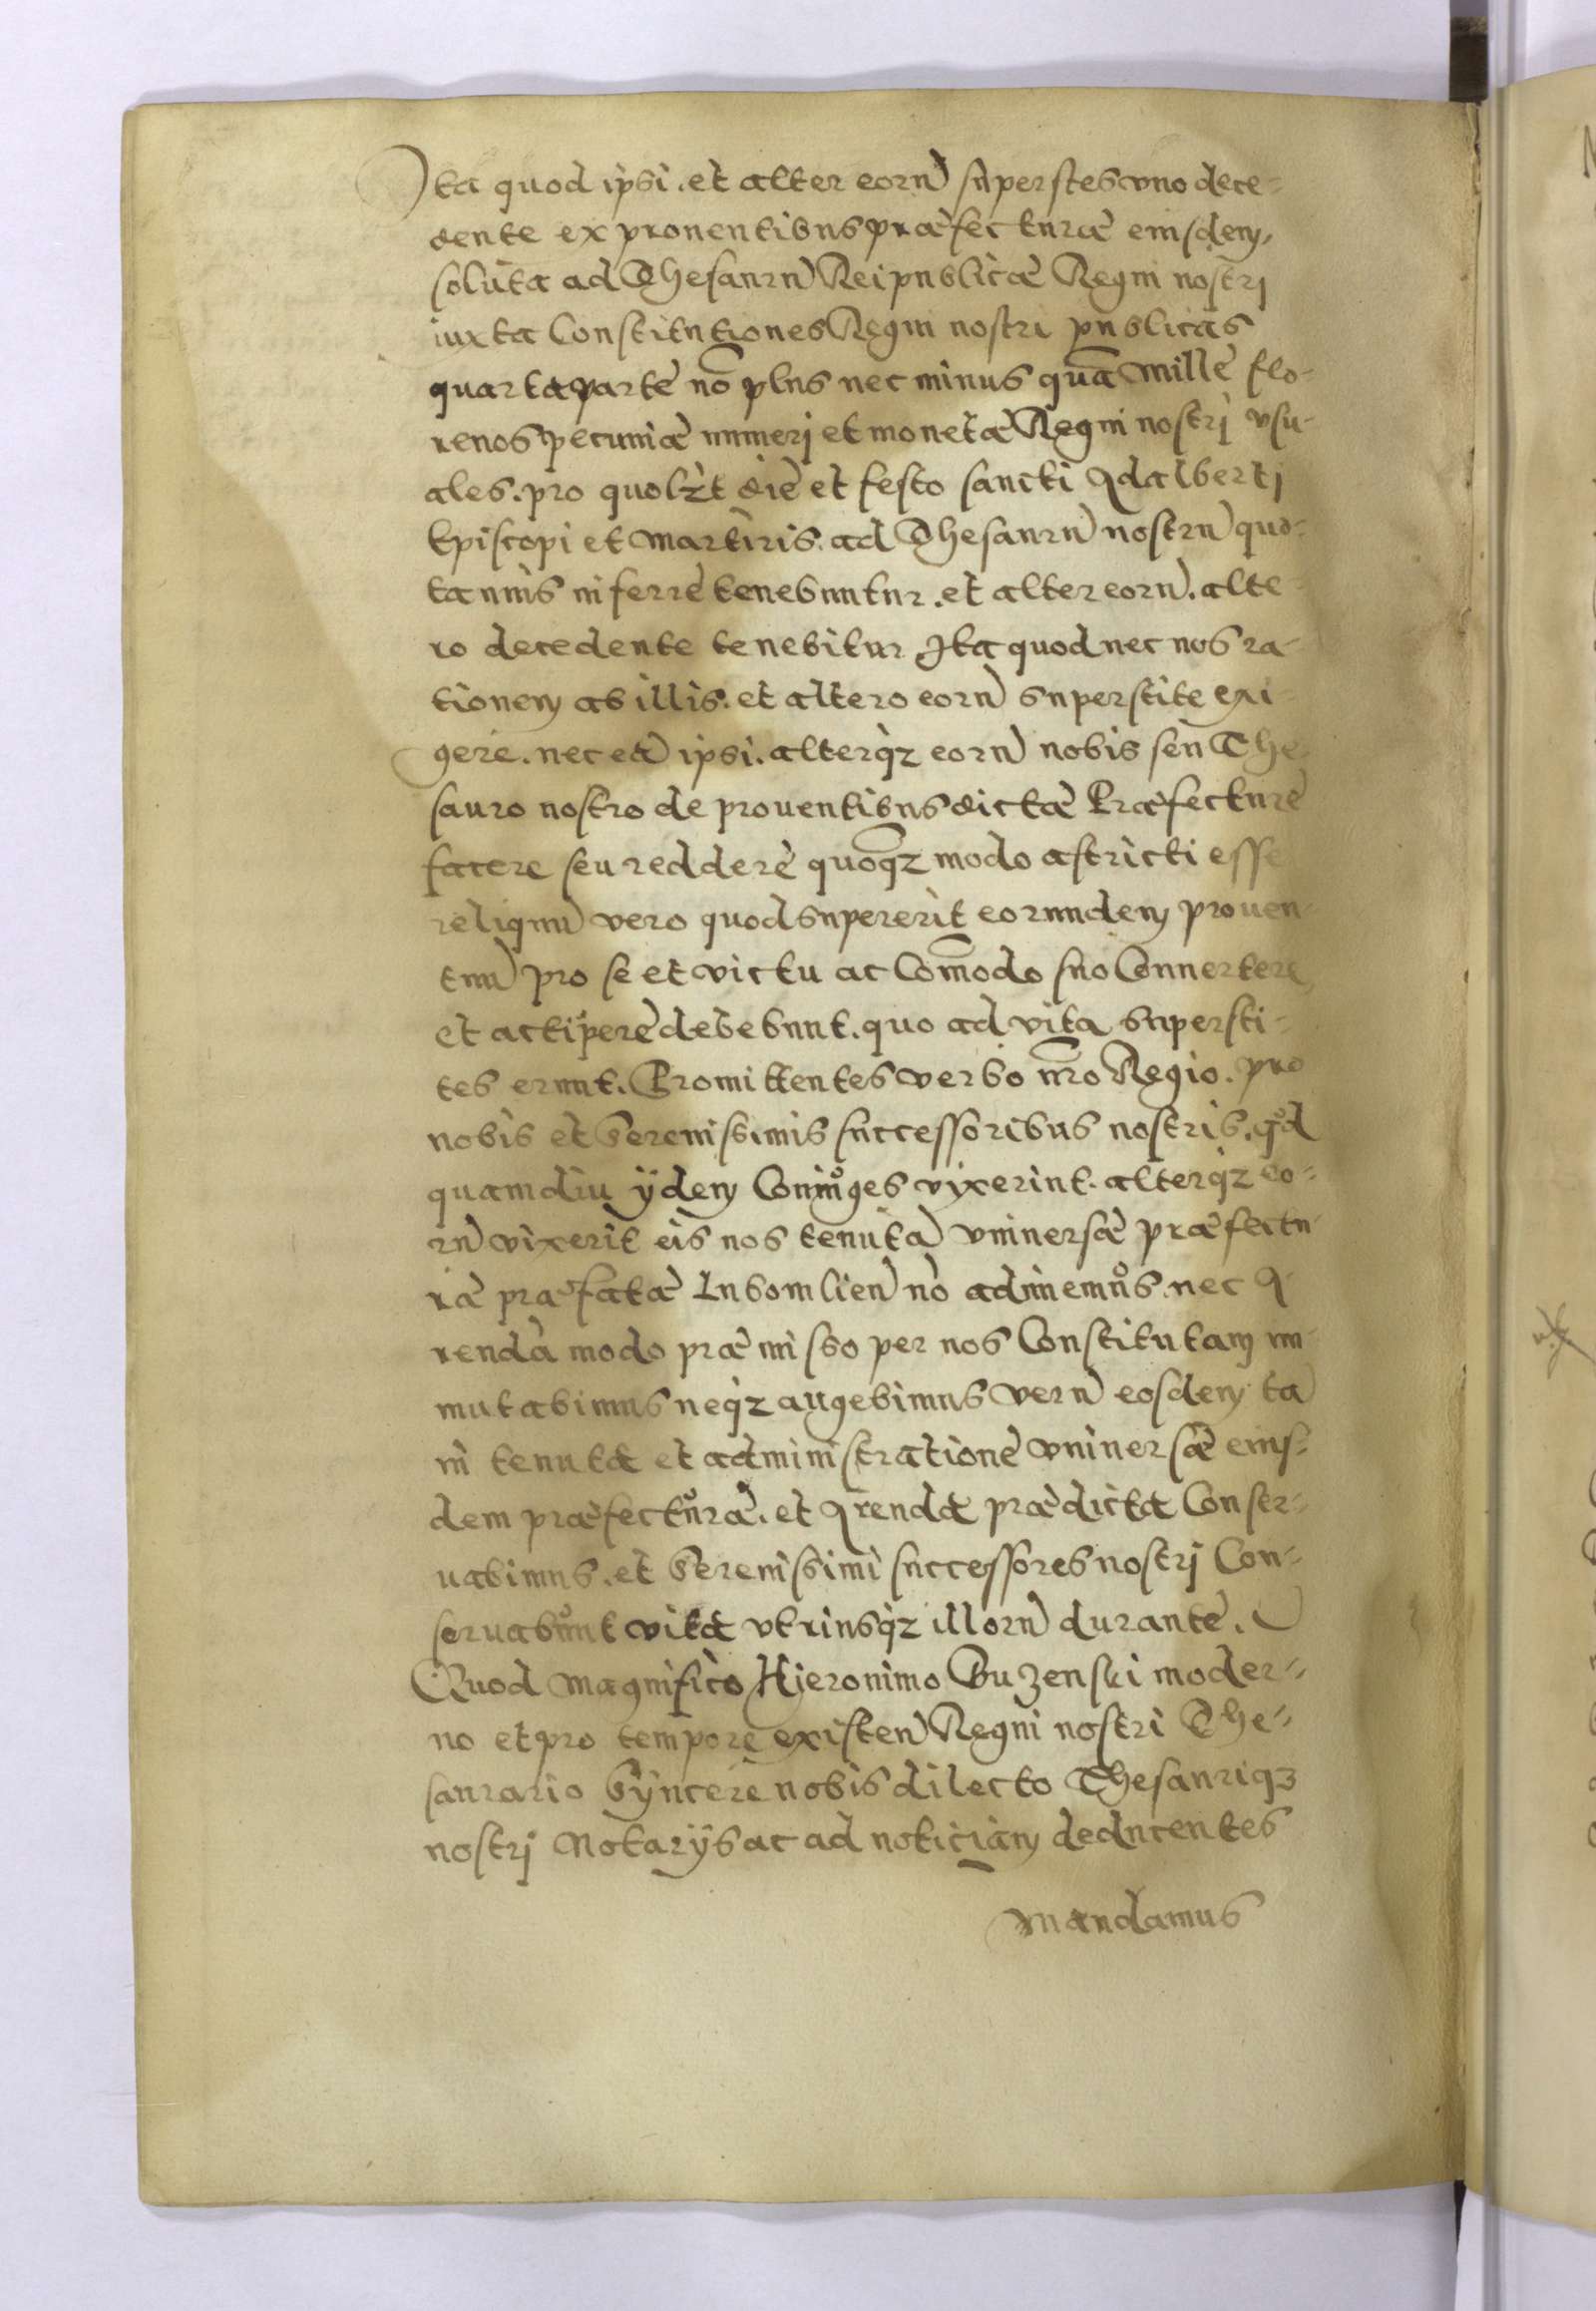 Ita quod ipsi. et alter eorũ superstes vno dece-
dente ex prouentibus præfecturæ eiusdem,
soluta ad Thesaurũ Reipublicæ Regni nostrj
iuxta Constitutiones Regni nostri publicas
quarta parte nõ plus nec minus quã mille flo-
renos pecuniæ numerj et monetæ Regni nostrj vsu-
ales. pro quolzt die et festo sancti Adalbertj
Episcopi et martiris. ad Thesaurũ nostrũ quo-
tannis inferre tenebuntur. et alter eorũ. alte-
ro decedente tenebitur Ita quod nec nos ra-
tionem ab illis. et altero eorũ superstite exi-
gere. nec eã ipsi. alterqz eorũ nobis seu The
sauro nostro de prouentibus dictæ Præfecture
facere seu reddere quoqz modo astricti esse
reliquũ vero quod supererit eorundem prouen-
tuũ pro se et victu ac Cõmodo suo Conuertere
et accipere debebunt. quo ad vita supersti-
tes erunt. Promittentes verbo nr̃o Regio. pro
nobis et Serenissimis successoribus nostris. qd
quamdiu ijdem Coniuges vixerint. alterqz eo-
rũ vixerit eis nos tenutã vniuersæ præfectu-
ræ præfatæ Insomlien̄ nõ adimemus. nec A-
rendã modo præmisso per nos Constitutam im-
mutabimus neqz augebimus verũ eosdem tã
in tenuta et administratione vniuersæ eius-
dem præfecturæ. et Arenda prædicta Conser-
uabimus. et Serenissimi successores nostrj Con-
seruabunt vita vtriusqz illorũ durante.
Quod magnifico Hieronimo Buzenski moder-
no et pro tempore existen̄ Regni nostri The-
saurario Syncere nobis dilecto Thesauriqz
nostrj Notarijs ac ad noticiam deducentes
mandamus